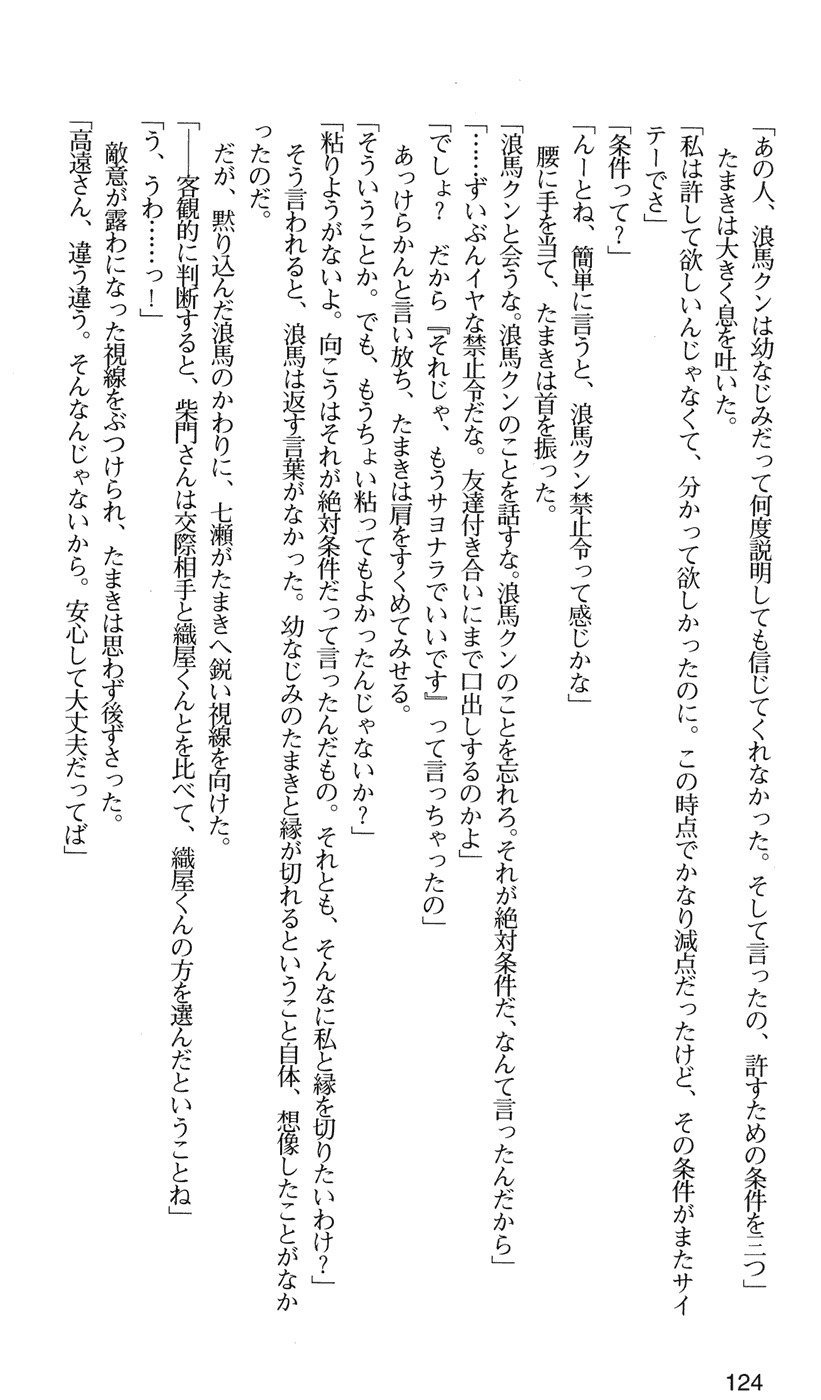 「あの人、浪馬クンは幼なじみだって何度説明しても信じてくれなかった。そして言ったの、許すための条件を三つ」
　たまきは大きく息を吐いた。
「私は許して欲しいんじゃなくて、分かって欲しかったのに。この時点でかなり減点だったけど、その条件がまたサイ
テーでさ」
「条件って？」
「んーとね、簡単に言うと、浪馬クン禁止令って感じかな」
　腰に手を当て、たまきは首を振った。
「浪馬クンと会うな。浪馬クンのことを話すな。浪馬クンのことを忘れろ。それが絶対条件だ、なんて言ったんだから」
「……ずいぶんイヤな禁止令だな。友達付き合いにまで口出しするのかよ」
「でしょ？　だから『それじゃ、もうサヨナラでいいです』って言っちゃったの」
　あっけらかんと言い放ち、たまきは肩をすくめてみせる。
「そういうことか。でも、もうちょい粘ってもよかったんじゃないか？」
「粘りようがないよ。向こうはそれが絶対条件だって言ったんだもの。それとも、そんなに私と縁を切りたいわけ？」
　そう言われると、浪馬は返す言葉がなかった。幼なじみのたまきと縁が切れるということ自体、想像したことがなか
ったのだ。
　だが、黙り込んだ浪馬のかわりに、七瀬がたまきへ鋭い視線を向けた。
「――客観的に判断すると、柴門さんは交際相手と織屋くんとを比べて、織屋くんの方を選んだということね」
「う、うわ……っ！」
　敵意が露わになった視線をぶつけられ、たまきは思わず後ずさった。
「高遠さん、違う違う。そんなんじゃないから。安心して大丈夫だってば」
124